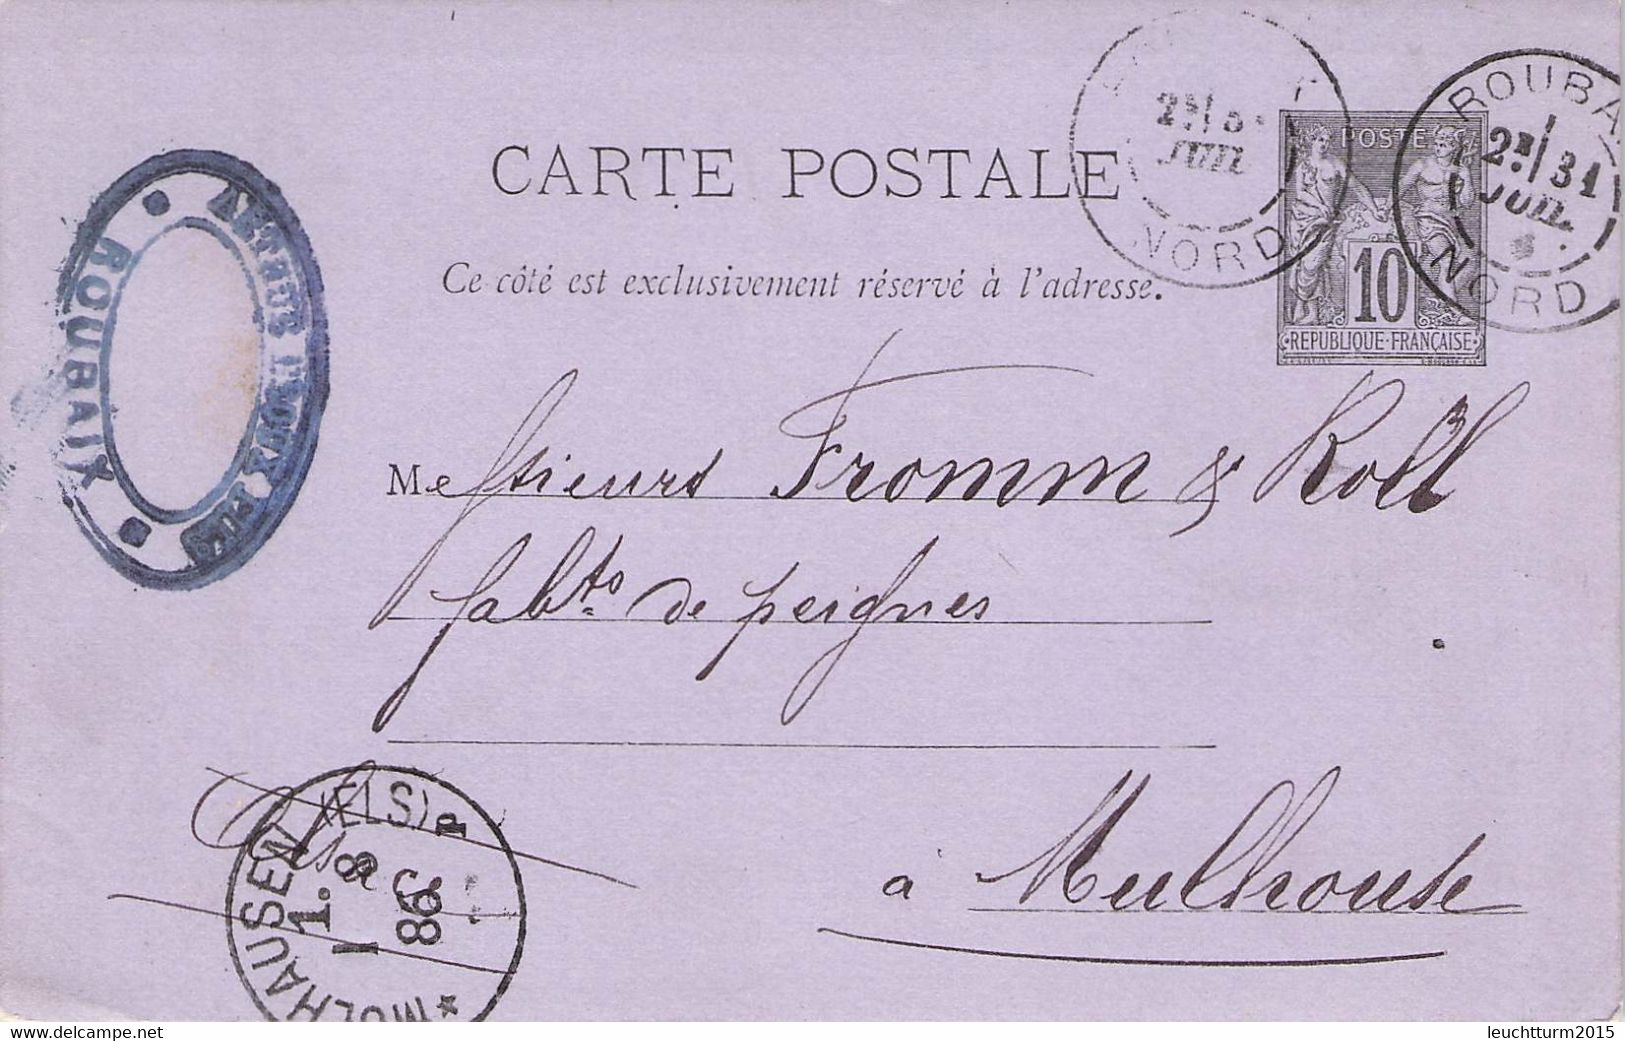 CARTE POSTALE
Ce côté est exclusivement réservé à l'adresse.
POSTE
10
REPUBLIQUE FRANÇAISE
NORD
JUIL
ROUBA
31
JUIL.
NORD
ROUBAIX
Messieurs Fromm & Roll
fabts de peignes
à Mulhouse
MÜLHAUSEN (ELS) P
1. 8
86
delcampe.net
leuchtturm2015